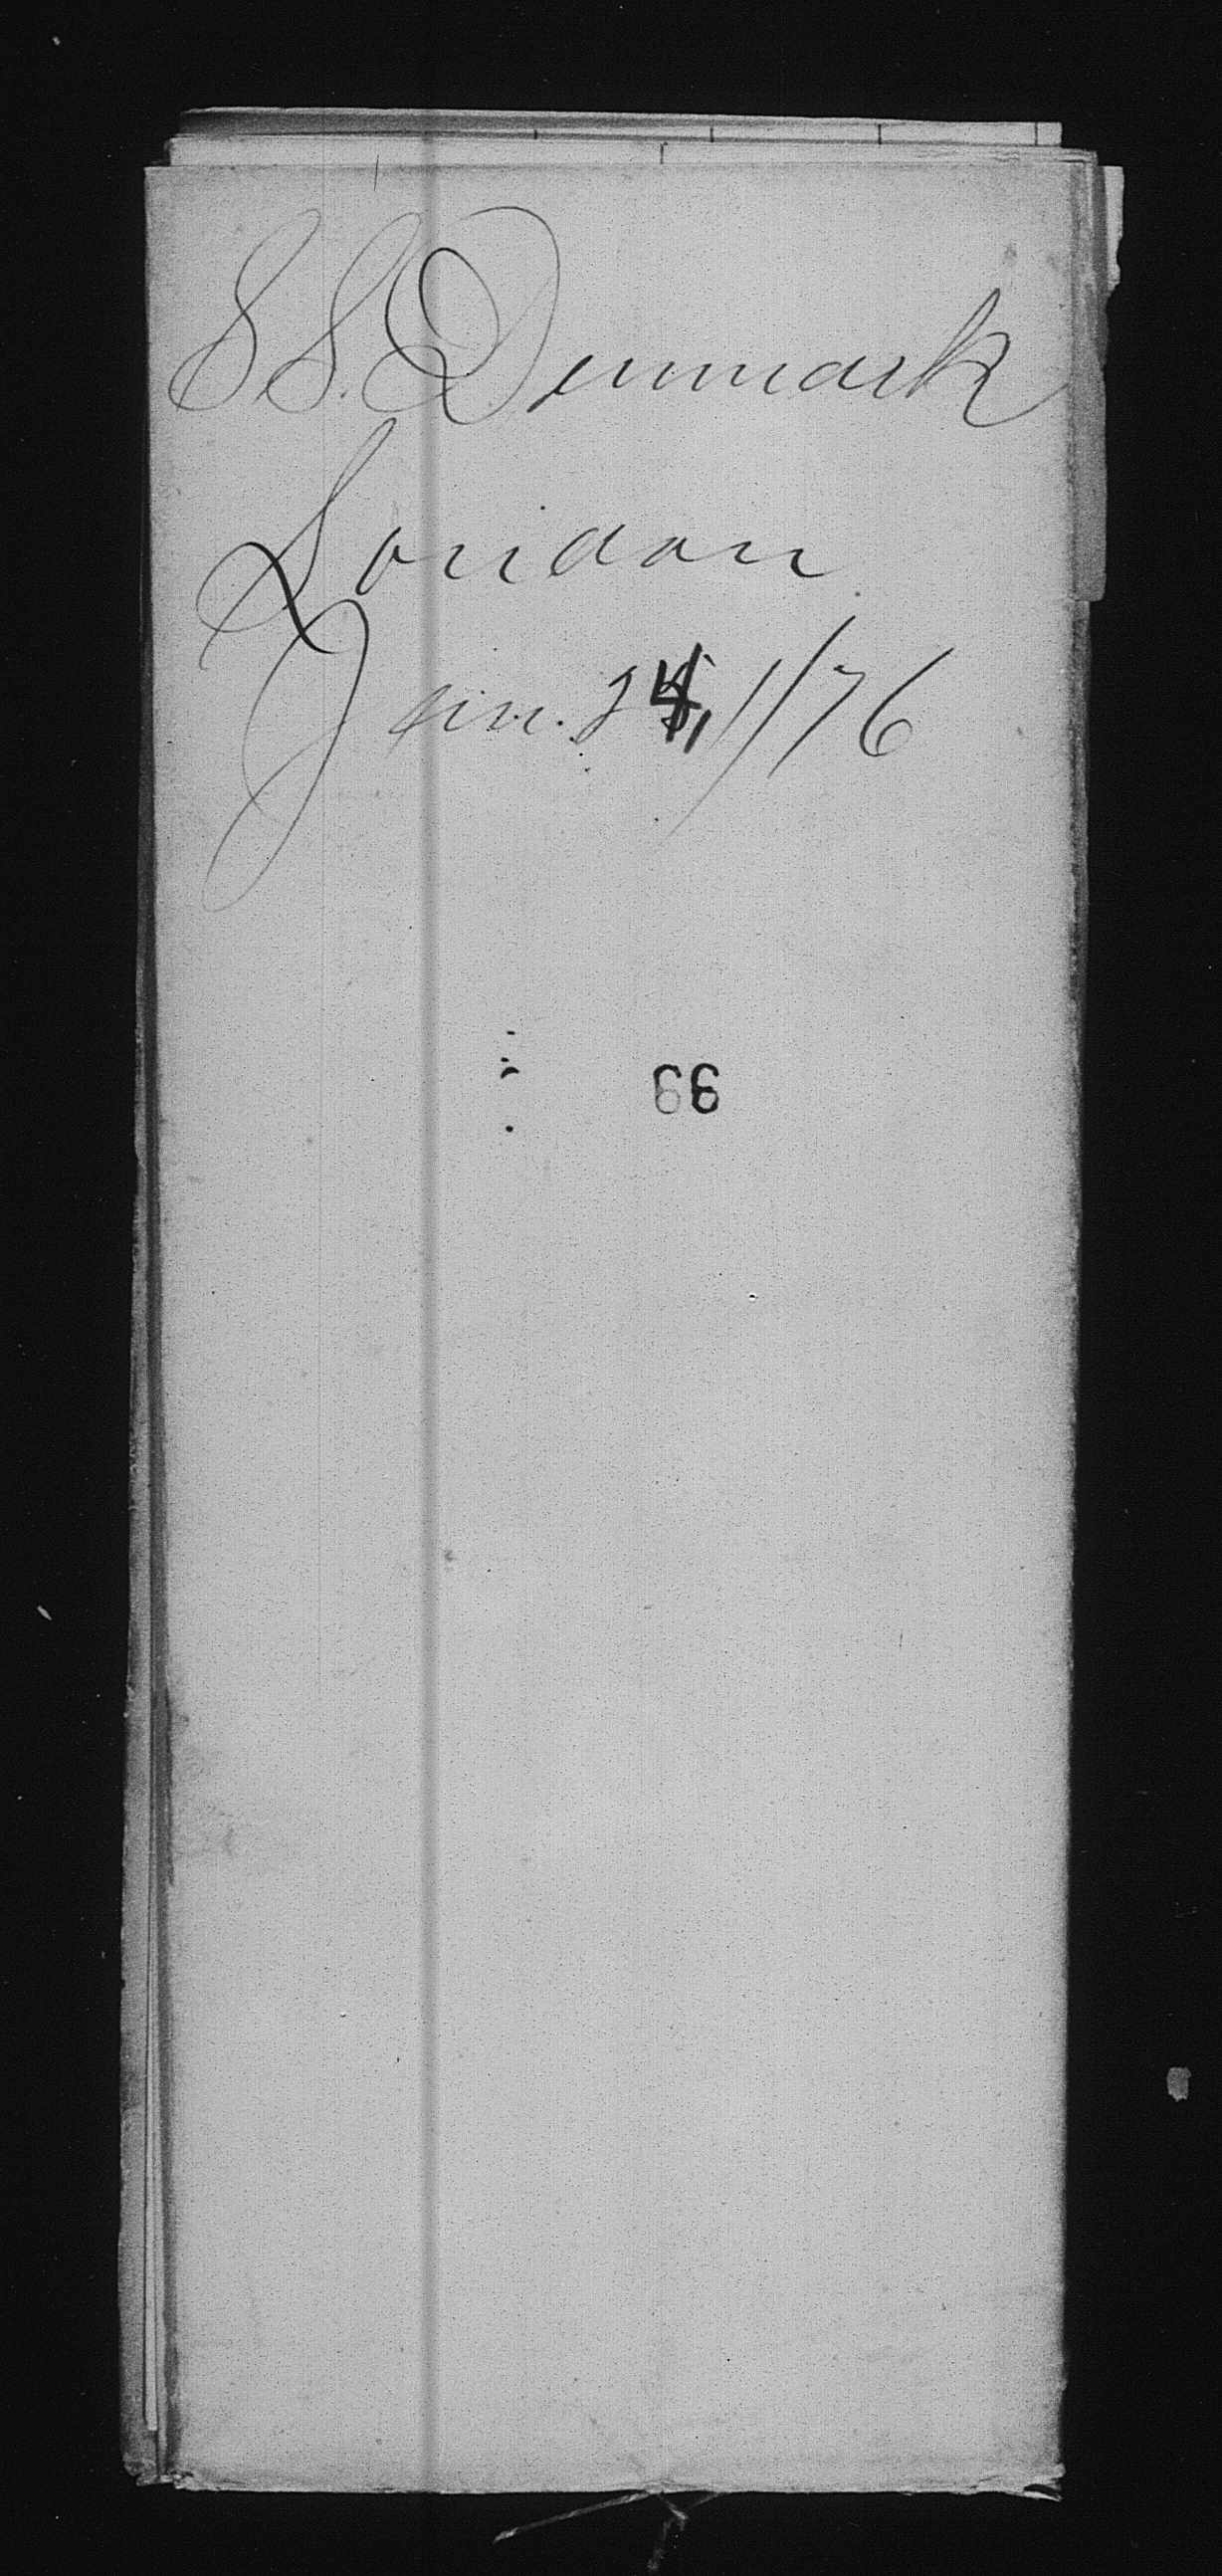 SS. Denmark
London
Jan. 24, 1/76
66